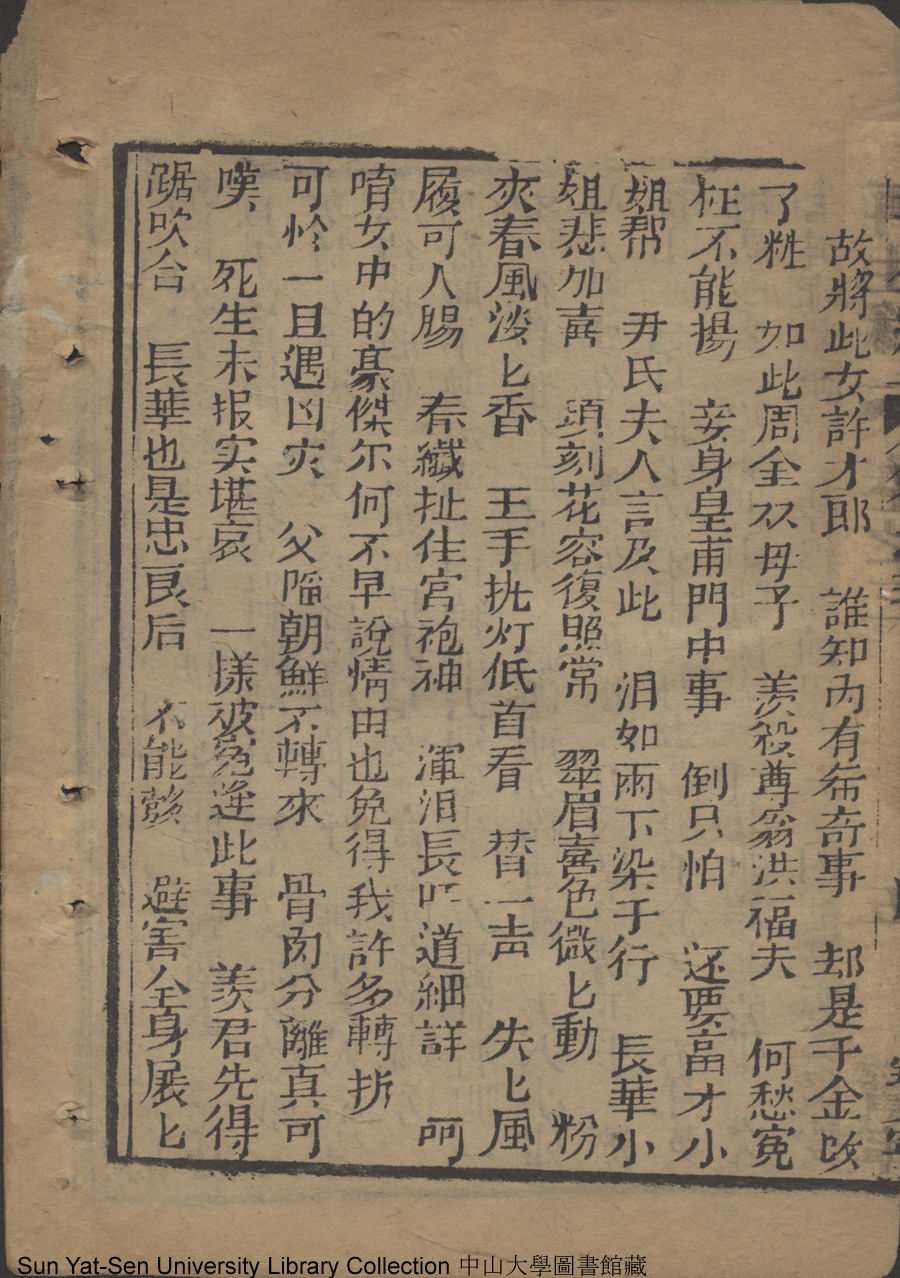 故將此女許才郎 誰知內有希奇事 却是千金改
了粧 如此周全双母子 羨殺尊翁洪福夫 何愁寃
枉不能揚 妾身皇甫門中事 倒只怕 还要畗才小
姐帮 尹氏夫人言及此 泪如雨下染于行 長華小
姐悲加喜 頭刻花容復照常 翠眉喜色微匕動 粉
夾春風淡匕香 王手执灯低首看 替一声 失匕風
履可人腸 春纖扯住宮袍神 渾泪長吁道細詳 呵
唷女中的豪傑尔何不早說情由也免得我許多轉折
可怜一旦遇凶灾 父陷朝鮮不轉來 骨肉分離真可
嘆 死生未报实堪哀 一様破冤逢此事 羨君先得
踞吹台 長華也是忠良后 不能彀 避害全身展匕
Sun Yat-Sen University Library Collection 中山大學圖書館藏